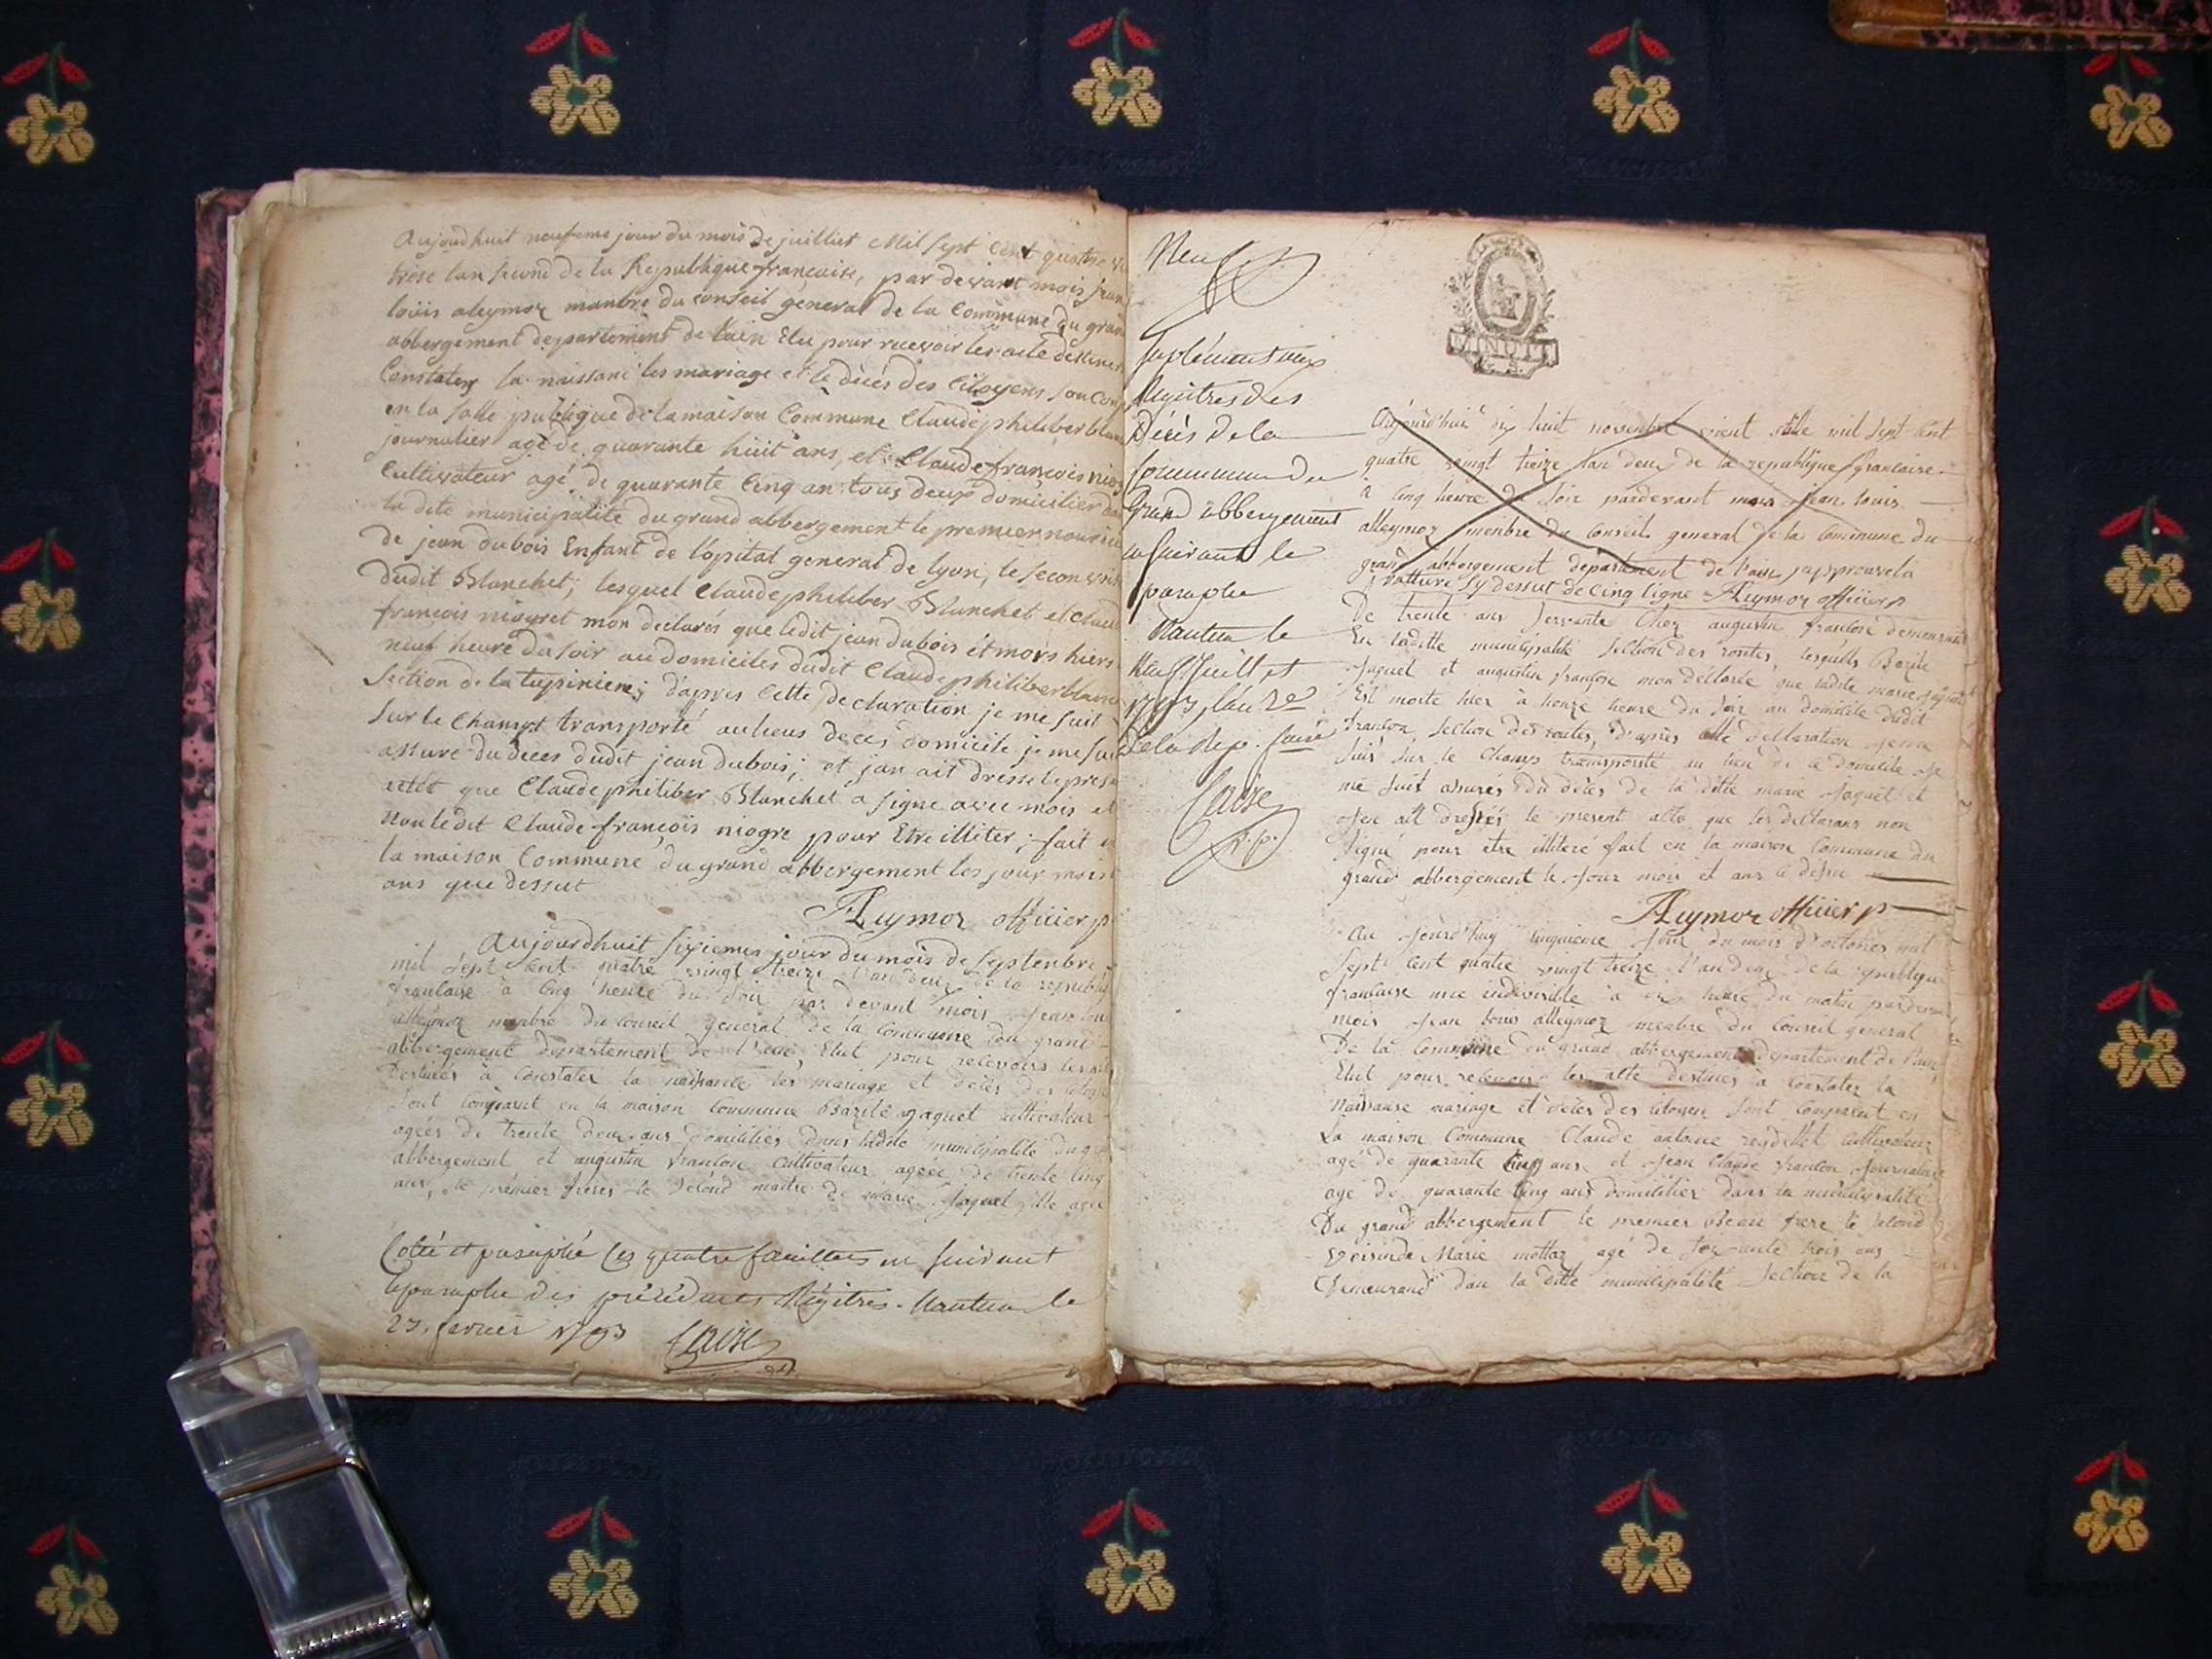 Aujoudhuit neufieme jour du mois de juilliet Mil Sept Cent quatre
trese lan second de la Republique francaise, par devant mois jean
louis aleymoz manbre du conseil general de la Commune du grand
abbergement departement de lain Elu pour recevoir les acte destines
Constater la naissanc les mariage et le déces des Citoyens son Comp
en la salle publique de la maison Commune Claude philiber blanc
journalier agé de quarante huit ans, et Claude francois niog
Cultivateur agé de quarante Cinq an tous deux domicilier da
la dite municipalité du grand abbergement le premier nouricie
de jean dubois Enfant de lopital general de lyon, le secon voisi
dudit Blanchet; lesquel Claude philiber Blanchet et claud
francois niogret mon declarés que ledit jean dubois ét mors hiers
neuf heure du soir au domiciles dudit Claude philiber blanc
Section de la tupiniere; d'apres Cette declaration je me suit
sur le Champt transporté au lieus de ces domicile je me suit
assuré du deces dudit jean dubois; et jan ait dresse le pres
actet que Claude philiber Blanchet a signe avec mois et
Non ledit Claude françois niogre pour Etre illiter; fait en
la maison Commune du grand abbergement les jour mois
ans que dessut
Aleymoz officier p
Aujourdhuit sixiemes jour du mois de septenbre
mil sept cent quatre vingt treize l'an deux de la republi
francaise à cinq heure du soir par devant mois jean loui
alleymoz menbre du conseil general de la commune du grand
abbergement departement de l'ain, Elut pour recevoirs les act
destinés à constater la naissance les mariage et décès des citoye
sont comparut en la maison commune Bazile Jaquet cultivateur
agées de trente deux ans domiciliés dans ladite municipalité du g
abbergement et augustin francon cultivateur agée de trente cinq
ans, le premier freres le second maitre de marie Jaquet fille agée
Cotté et paraphé les quatre feuillets en suivant
le paraphe des précédents Régitres. Nantua le
27. fevrier 1793
Neuf
Suplément aux
Régitres des
Décès de la
Commune du
Grand abbergement
en suivant le
paraphe
Nantua le
Neuf Juillet
1793 l'an 2e
de la Rép. fçaise
MINUTE
Aujourd'hui dix huit novembre vieut stile mil sept cent
quatre vingt treize l'an deux de la republique francaise
à cinq heure du soir pardevant mois jean louis
alleymoz menbre du conseil general de la commune du
grand abbergement departement de l'ain japprouve la
ratture sy dessut de Cinq ligne Aleymoz officier p
De trente ans servante chez augustin francon demeurant
En laditte municipalité section des routes, lesquels Bazile
Jaquet et augustin francon mon déclarée que ladite marie Jaquet
Est morte hier à honze heure du soir au domicile dudit
francon, section des routes, d'après cette declaration je me
suis sur le champs transporté au lieu de ce domicile je
me suit assurés du décès de la ditte marie Jaquet et
jen ait dressés le present acte que les declarans non
signé pour etre illiteré fait en la maison commune du
grand abbergement le jour mois et ans ci dessu
Aleymoz officier p
Au jourd'huy cinquieme jour du mois d'octobres mil
sept cent quatre vingt treize l'an deux de la republique
francaise une indivisible à dix heure du matin pardevant
mois jean louis alleymoz menbre du conseil general
De la commune du grand abbergement departement de l'ain
Elut pour recevoir les acte destinés à constater la
naissanse mariage et décès des citoyen sont comparut en
La maison commune Claude antoine reydellet cultivateur
agé de quarante cinq ans et jean Claude francon journalier
agé de quarante cinq ans domicilier dans la municipalité
Du grand abbergement le premier Beau frere le second
voisin de Marie mottaz agé de soixante trois ans
Demeurand dan la ditte municipalité section de la